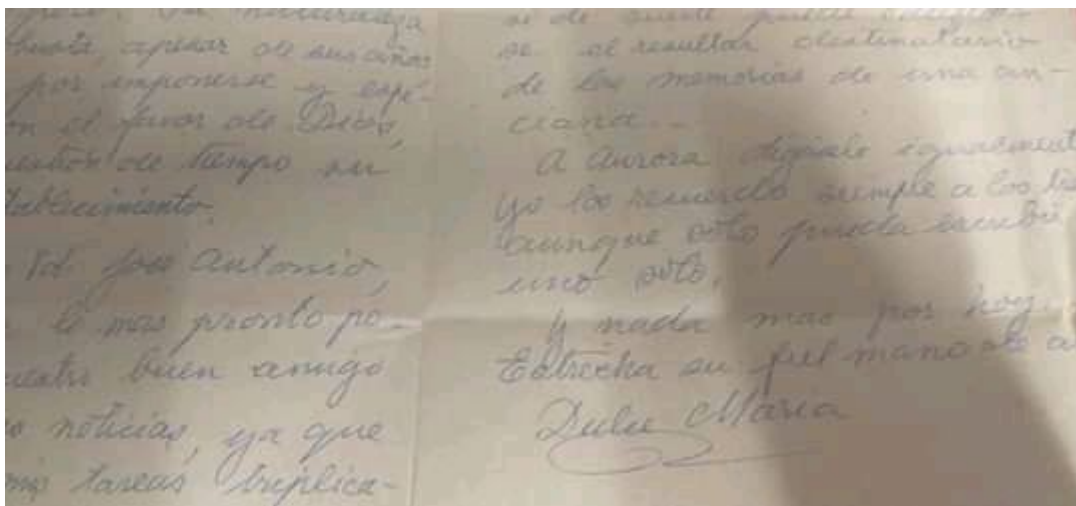 naturaleza
apesar de sus años
por imponerse y espe-
el favor de Dios,
de tiempo su
tablecimiento.
Vd. José Antonio,
lo mas pronto po-
buen amigo
noticias, ya que
mis tareas triplica-
de puede
se el resultar destinatario
de las memorias de una an-
ciana...
A Aurora dígale igualment
yo los recuerdo siempre a los
aunque solo pueda escribi
uno solo.
Y nada mas por hoy.
Estrecha su fiel mano de a
Dulce María